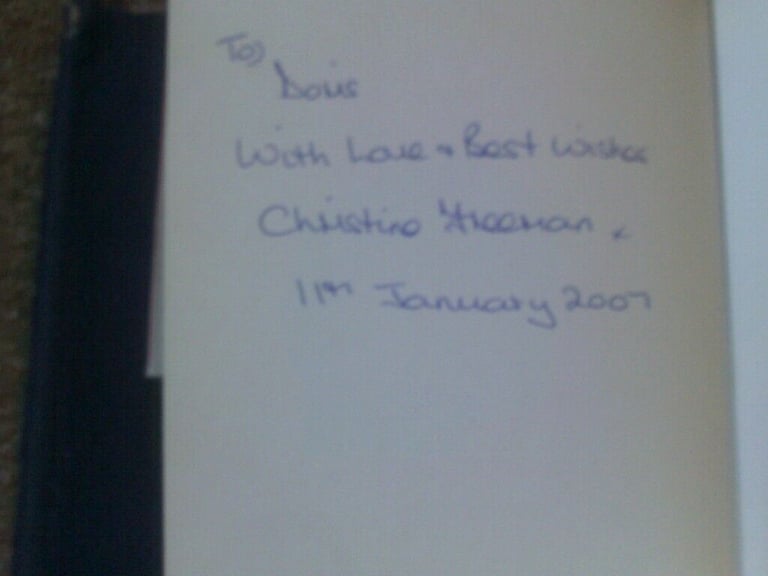 To
Doris
With Love + Best Wishes
Christine Freeman x
11th January 2007